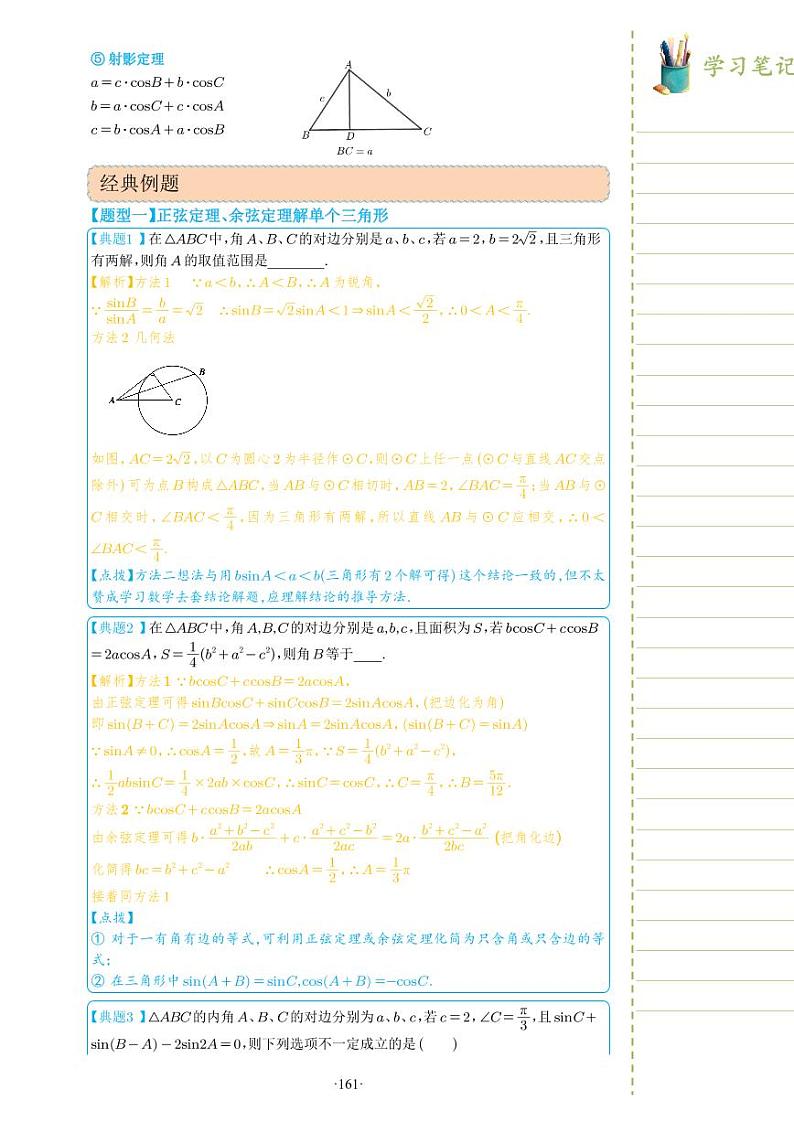 ⑤ 射影定理
a=c·cosB+b·cosC
b=a·cosC+c·cosA
c=b·cosA+a·cosB
A
c
b
B
D
C
BC=a
学习笔记
经典例题
【题型一】正弦定理、余弦定理解单个三角形
【典题1 】在△ABC中,角A、B、C的对边分别是a、b、c,若a=2,b=2√2,且三角形
有两解,则角A的取值范围是________.
【解析】方法1 ∵a<b,∴A<B,∴A为锐角,
∵sinB/sinA=b/a=√2 ∴sinB=√2sinA<1⇒sinA<√2/2,∴0<A<π/4.
方法2 几何法
A
B
C
如图,AC=2√2,以C为圆心2为半径作⊙C,则⊙C上任一点(⊙C与直线AC交点
除外)可为点B构成△ABC,当AB与⊙C相切时,AB=2,∠BAC=π/4;当AB与⊙
C相交时,∠BAC<π/4,因为三角形有两解,所以直线AB与⊙C应相交,∴0<
∠BAC<π/4.
【点拨】方法二想法与用bsinA<a<b(三角形有2个解可得)这个结论一致的,但不太
赞成学习数学去套结论解题,应理解结论的推导方法.
【典题2 】在△ABC中,角A,B,C的对边分别是a,b,c,且面积为S,若bcosC+ccosB
=2acosA,S=1/4(b²+a²−c²),则角B等于____.
【解析】方法1 ∵bcosC+ccosB=2acosA,
由正弦定理可得sinBcosC+sinCcosB=2sinAcosA,(把边化为角)
即sin(B+C)=2sinAcosA⇒sinA=2sinAcosA,(sin(B+C)=sinA)
∵sinA≠0,∴cosA=1/2,故A=1/3π,∵S=1/4(b²+a²−c²),
∴1/2absinC=1/4×2ab×cosC,∴sinC=cosC,∴C=π/4,∴B=5π/12.
方法2 ∵bcosC+ccosB=2acosA
由余弦定理可得b·(a²+b²−c²)/2ab+c·(a²+c²−b²)/2ac=2a·(b²+c²−a²)/2bc (把角化边)
化简得bc=b²+c²−a² ∴cosA=1/2,∴A=1/3π
接着同方法1
【点拨】
① 对于一有角有边的等式,可利用正弦定理或余弦定理化简为只含角或只含边的等
式;
② 在三角形中sin(A+B)=sinC,cos(A+B)=−cosC.
【典题3 】△ABC的内角A、B、C的对边分别为a、b、c,若c=2,∠C=π/3,且sinC+
sin(B−A)−2sin2A=0,则下列选项不一定成立的是( )
·161·